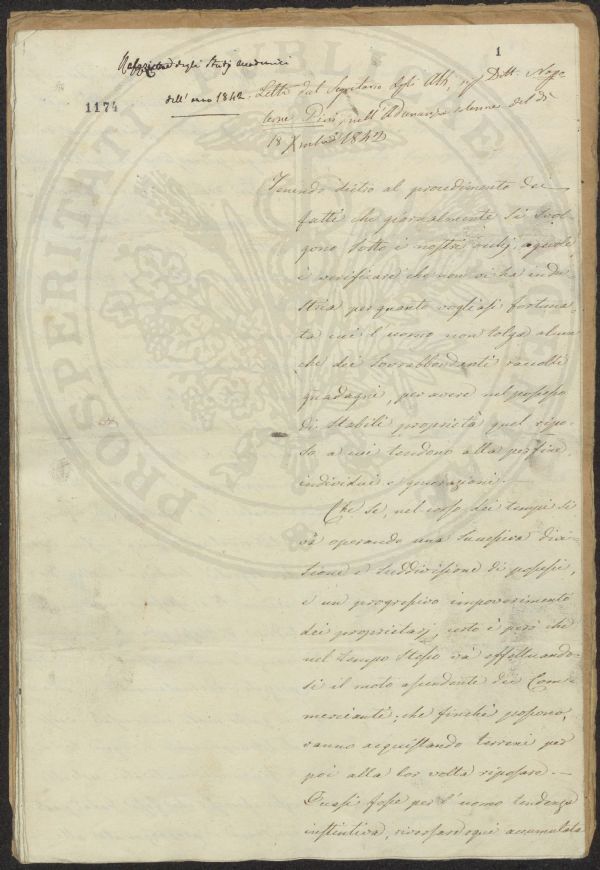 1
1174
Rapporto degli Studj Accademici
dell'anno 1842. Letto dal Segretario degli Atti, sig.r Dott. Napo-
leone Pini, nell'Adunanza solenne del dì
18 Xmbre 1842
Tenendo dietro al procedimento dei
fatti che giornalmente si svol-
gono sotto i nostri occhj, agevole
è verificare che non vi ha indu-
stria per quanto vogliasi fortuna-
ta cui l'uomo non tolga alcun
che dei sovrabbondanti raccolti
guadagni, per avere nel possesso
di stabili proprietà quel ripo-
so a cui tendono alla per fine,
individui e generazioni. —
Che se, nel corso dei tempi si
và operando una successiva divi-
sione e suddivisione di possessi,
e un progressivo impoverimento
dei proprietarj, certo è però che
nel tempo stesso và effettuando-
si il moto ascendente dei Com-
mercianti, che finchè possono,
vanno acquistando terreni per
poi alla lor volta riposare. —
Quasi fosse per l'uomo tendenza
instintiva, riversare ogni accumulata
PROSPERITATI PUBLICAE